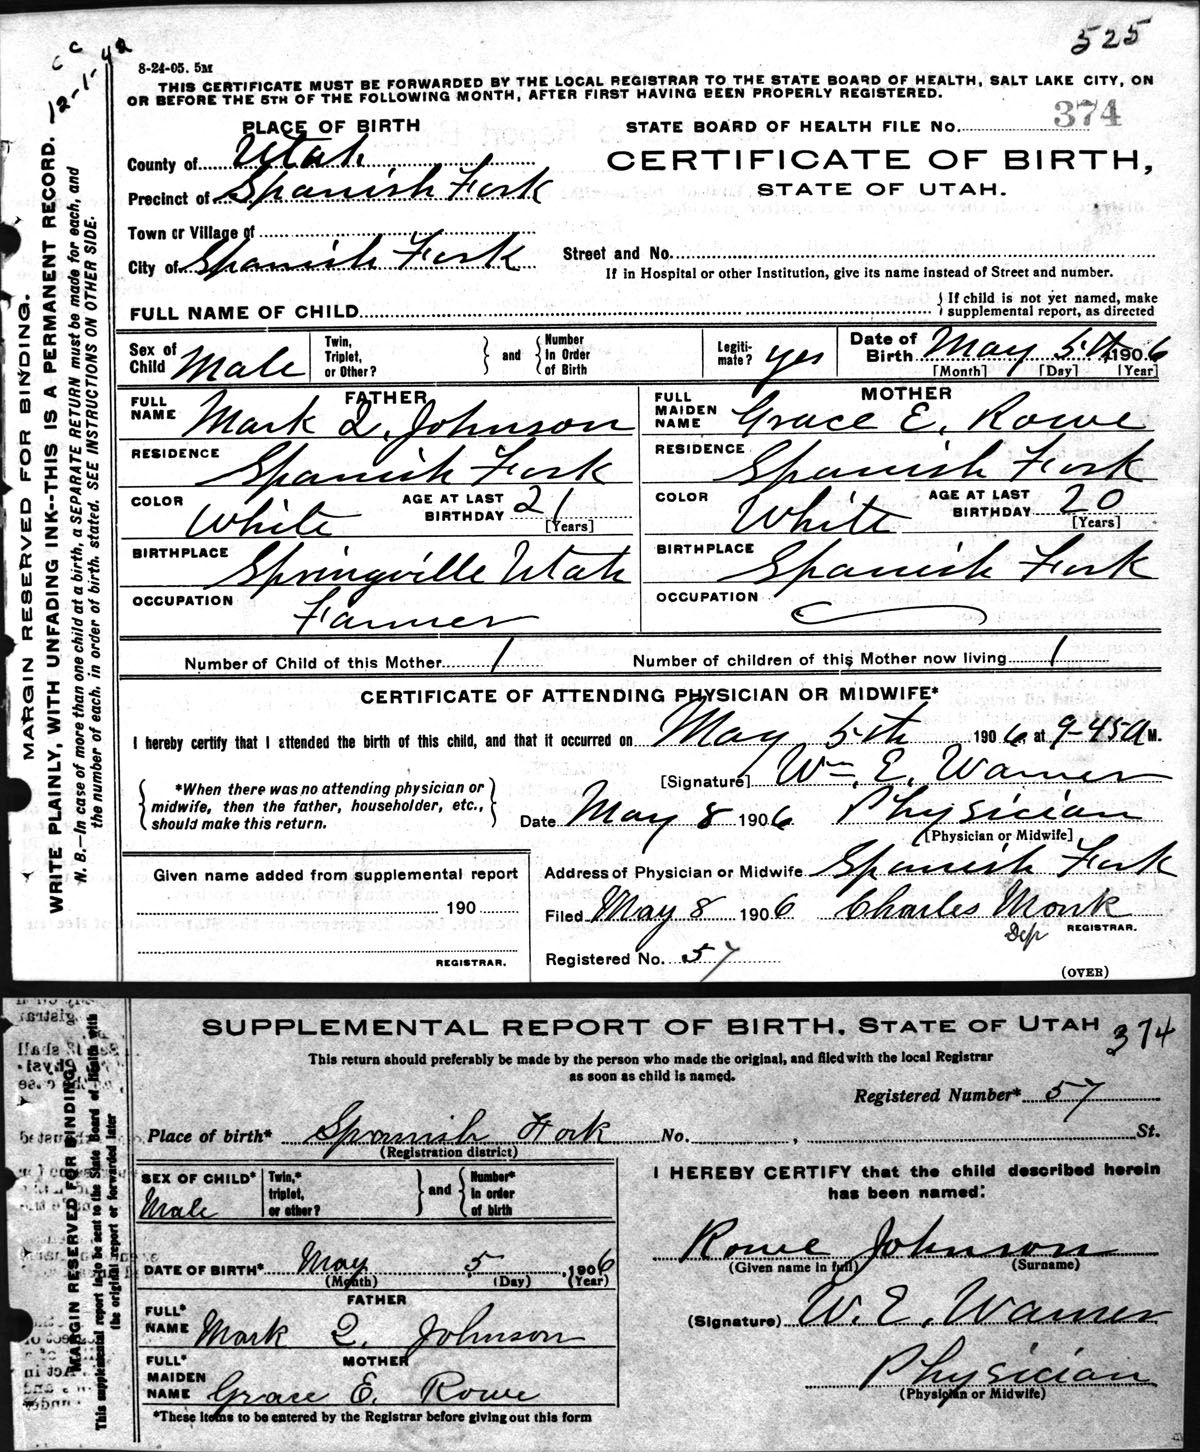 525
c c
12-1-42
8-24-05. 5M
THIS CERTIFICATE MUST BE FORWARDED BY THE LOCAL REGISTRAR TO THE STATE BOARD OF HEALTH, SALT LAKE CITY, ON
OR BEFORE THE 5TH OF THE FOLLOWING MONTH, AFTER FIRST HAVING BEEN PROPERLY REGISTERED.
MARGIN RESERVED FOR BINDING.
WRITE PLAINLY, WITH UNFADING INK--THIS IS A PERMANENT RECORD.
N. B.—In case of more than one child at a birth, a SEPARATE RETURN must be made for each, and
the number of each, in order of birth, stated. SEE INSTRUCTIONS ON OTHER SIDE.
PLACE OF BIRTH
STATE BOARD OF HEALTH FILE No. 374
County of Utah
CERTIFICATE OF BIRTH,
STATE OF UTAH.
Precinct of Spanish Fork
Town or Village of
City of Spanish Fork
Street and No.
If in Hospital or other Institution, give its name instead of Street and number.
FULL NAME OF CHILD
If child is not yet named, make
supplemental report, as directed
Sex of Child Male
Twin, Triplet, or Other? and Number In Order of Birth
Legiti-mate? yes
Date of Birth May 5th, 1906
[Month] [Day] [Year]
FATHER
MOTHER
FULL NAME Mark Q. Johnson
FULL MAIDEN NAME Grace E. Rowe
RESIDENCE Spanish Fork
RESIDENCE Spanish Fork
COLOR White AGE AT LAST BIRTHDAY 21 [Years]
COLOR White AGE AT LAST BIRTHDAY 20 [Years]
BIRTHPLACE Springville Utah
BIRTHPLACE Spanish Fork
OCCUPATION Farmer
OCCUPATION
Number of Child of this Mother 1
Number of children of this Mother now living 1
CERTIFICATE OF ATTENDING PHYSICIAN OR MIDWIFE*
I hereby certify that I attended the birth of this child, and that it occurred on May 5th 1906, at 9-45 A M.
[Signature] Wm. E. Warner
*When there was no attending physician or
midwife, then the father, householder, etc.,
should make this return.
Date May 8 1906 Physician
[Physician or Midwife]
Given name added from supplemental report
190
REGISTRAR.
Address of Physician or Midwife Spanish Fork
Filed May 8 1906 Charles Monk
Dep REGISTRAR.
Registered No. 57
(OVER)
SUPPLEMENTAL REPORT OF BIRTH, STATE OF UTAH 374
This return should preferably be made by the person who made the original, and filed with the local Registrar
as soon as child is named.
MARGIN RESERVED FOR BINDING
This supplemental report is to be sent to the State Board of Health with
the original report or forwarded later
Registered Number* 57
Place of birth* Spanish Fork No. , St.
(Registration district)
SEX OF CHILD* Male
Twin,* triplet, or other? and Number* In order of birth
I HEREBY CERTIFY that the child described herein
has been named:
Rowe Johnson
(Given name in full) (Surname)
DATE OF BIRTH* May 5, 1906
(Month) (Day) (Year)
FATHER
FULL* NAME Mark Q. Johnson
(Signature) W. E. Warner
MOTHER
FULL* MAIDEN NAME Grace E. Rowe
Physician
(Physician or Midwife)
*These items to be entered by the Registrar before giving out this form